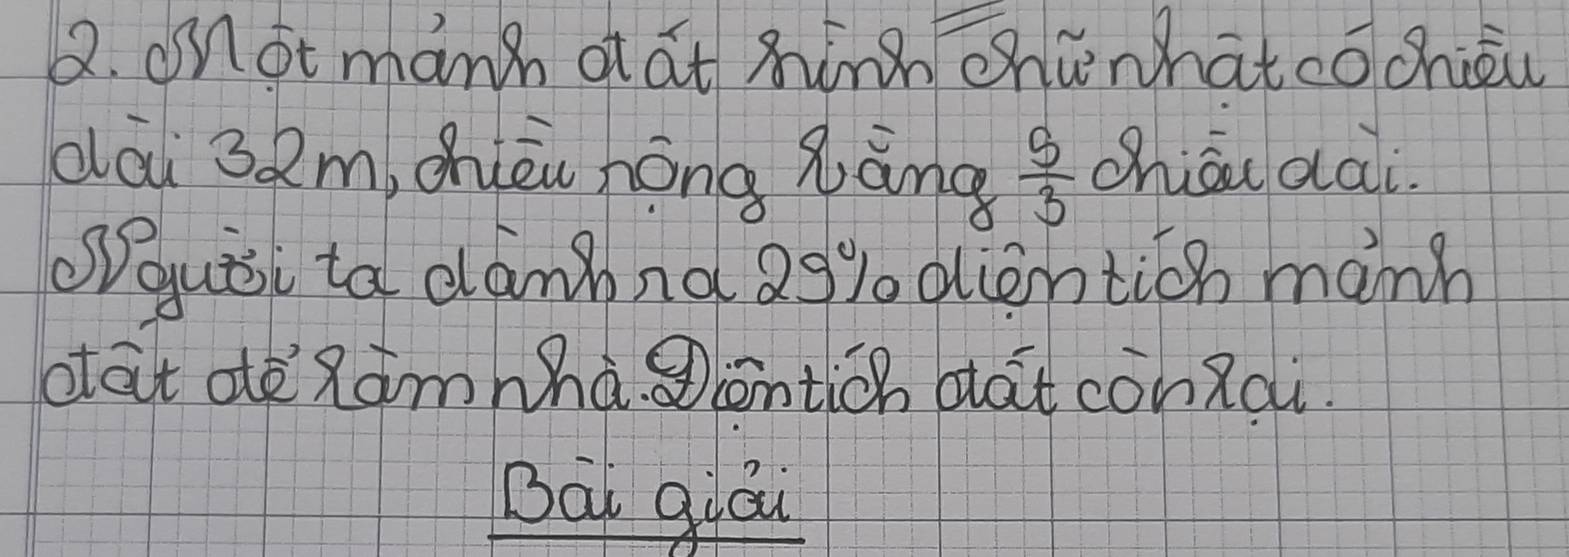 2. Một mảnh đất hình chữ nhật có chiều
dài 32m, chiều rộng bằng 5/3 chiều dài.
Người ta dành ra 29% diện tích mảnh
đất để làm nhà. Diện tích đất còn lại.
Bài giải